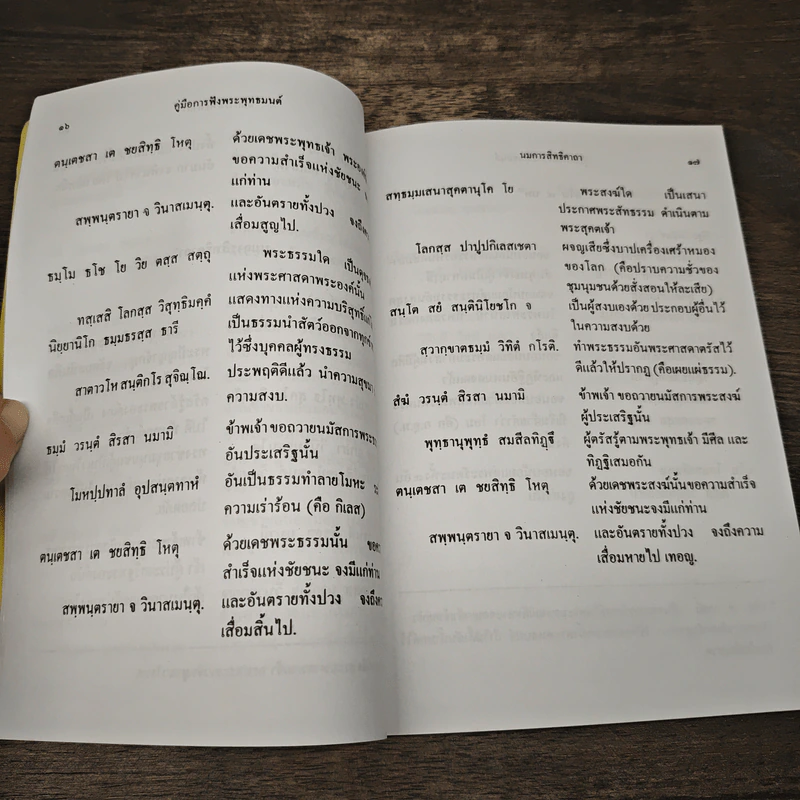 ๑๖
คู่มือการฟังพระพุทธมนต์
ตนฺเตชสา เต ชยสิทฺธิ โหตุ ด้วยเดชพระพุทธเจ้า
ขอความสำเร็จแห่งชัยชนะ
แก่ท่าน
สพฺพนฺตรายา จ วินาสเมนฺตุ. และอันตรายทั้งปวง จงถึงคว
เสื่อมสูญไป.
ธมฺโม ธโช โย วิย ตสฺส สตฺถุ พระธรรมใด เป็นดุจธง
แห่งพระศาสดาพระองค์นั้น
ทสฺเสสิ โลกสฺส วิสุทฺธิมคฺคํ แสดงทางแห่งความบริสุทธิ์แก่
นิยฺยานิโก ธมฺมธรสฺส ธารี เป็นธรรมนำสัตว์ออกจากทุกข์
ไว้ซึ่งบุคคลผู้ทรงธรรม
สาตาวโห สนฺติกโร สุจิณฺโณ. ประพฤติดีแล้ว นำความสุข
ความสงบ.
ธมฺมํ วรนฺตํ สิรสา นมามิ ข้าพเจ้า ขอถวายนมัสการพระ
อันประเสริฐนั้น
โมหปฺปทาลํ อุปสนฺตทาหํ อันเป็นธรรมทำลายโมหะ
ความเร่าร้อน (คือ กิเลส)
ตนฺเตชสา เต ชยสิทฺธิ โหตุ ด้วยเดชพระธรรมนั้น
สำเร็จแห่งชัยชนะ จงมีแก่ท่าน
สพฺพนฺตรายา จ วินาสเมนฺตุ. และอันตรายทั้งปวง จงถึงคว
เสื่อมสิ้นไป.
นมการสิทธิคาถา
๑๗
สทฺธมฺมเสนาสุคตานุโค โย พระสงฆ์ใด เป็นเสนา
ประกาศพระสัทธรรม ดำเนินตาม
พระสุคตเจ้า
โลกสฺส ปาปูปกิเลสเชตา ผจญเสียซึ่งบาปเครื่องเศร้าหมอง
ของโลก (คือปราบความชั่วของ
ชุมนุมชนด้วยสั่งสอนให้ละเสีย)
สนฺโต สยํ สนฺตินิโยชโก จ เป็นผู้สงบเองด้วย ประกอบผู้อื่นไว้
ในความสงบด้วย
สฺวากฺขาตธมฺมํ วิทิตํ กโรติ. ทำพระธรรมอันพระศาสดาตรัสไว้
ดีแล้วให้ปรากฏ (คือเผยแผ่ธรรม).
สํฆํ วรนฺตํ สิรสา นมามิ ข้าพเจ้า ขอถวายนมัสการพระสงฆ์
ผู้ประเสริฐนั้น
พุทฺธานุพุทฺธํ สมสีลทิฏฺฐึ ผู้ตรัสรู้ตามพระพุทธเจ้า มีศีล และ
ทิฏฐิเสมอกัน
ตนฺเตชสา เต ชยสิทฺธิ โหตุ ด้วยเดชพระสงฆ์นั้นขอความสำเร็จ
แห่งชัยชนะจงมีแก่ท่าน
สพฺพนฺตรายา จ วินาสเมนฺตุ. และอันตรายทั้งปวง จงถึงความ
เสื่อมหายไป เทอญ.